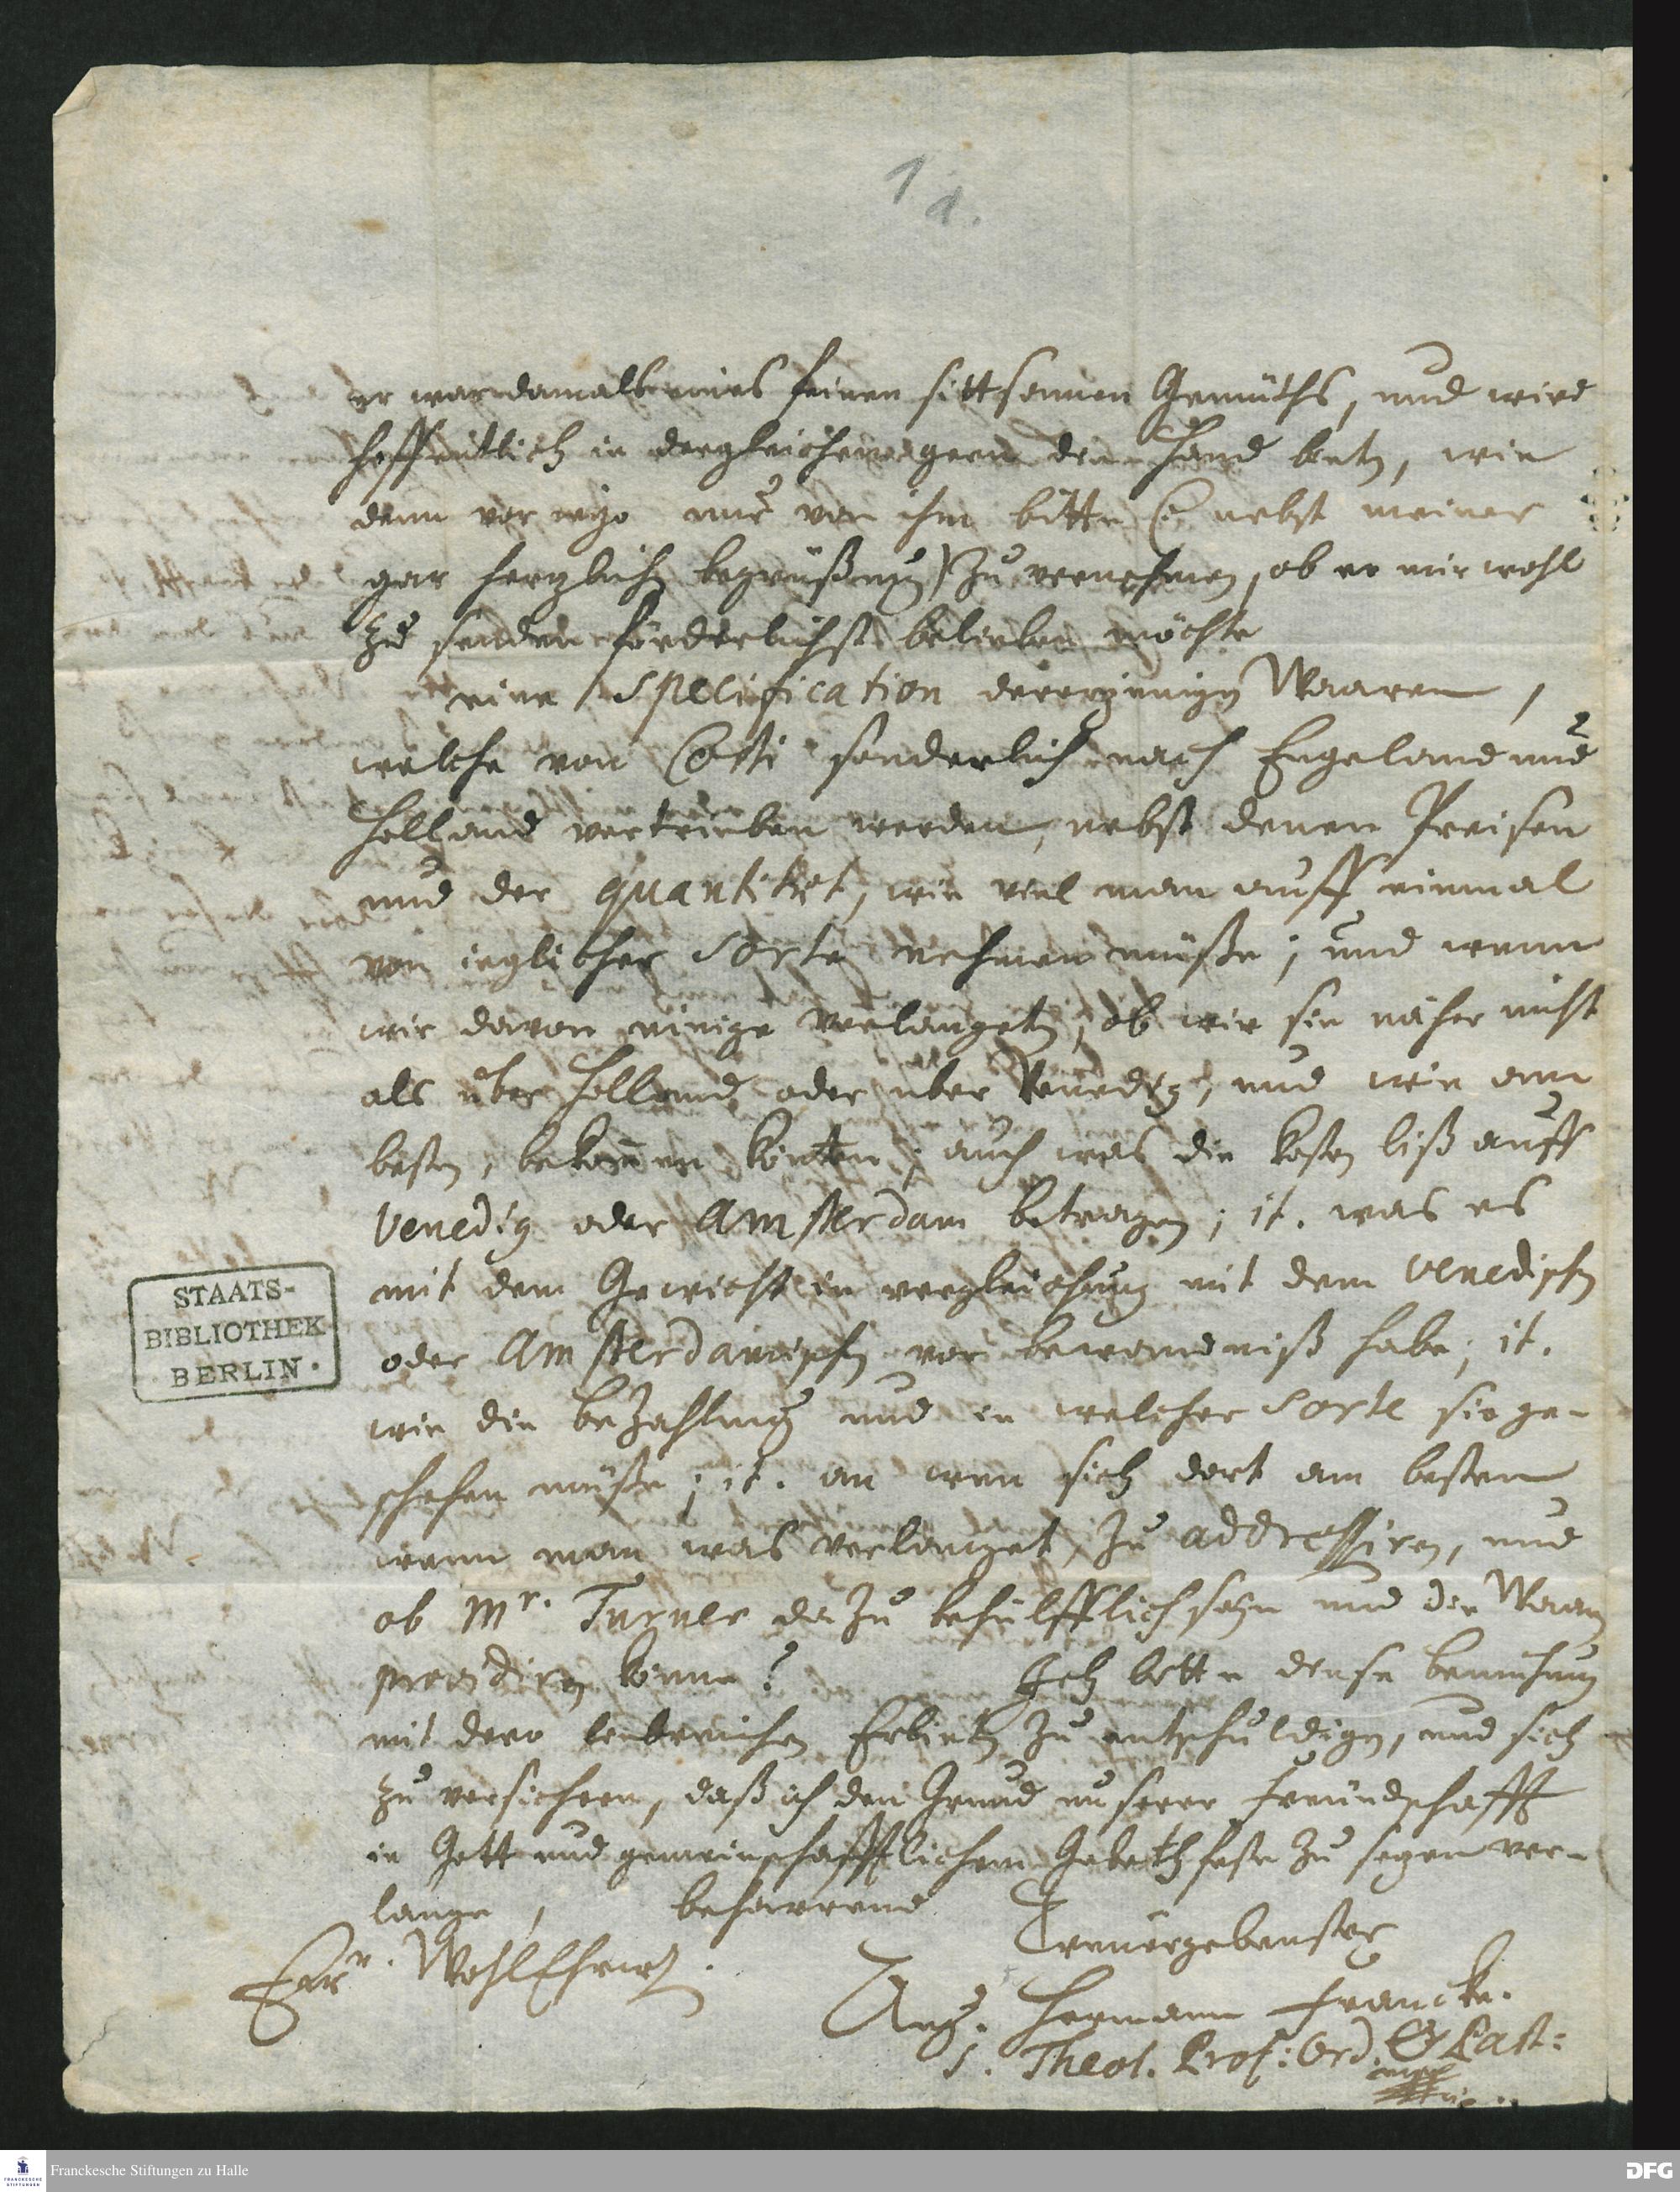 1 a.
er war damals eines feinen sittsamen Gemüths, und wird
hoffentlich in dergleichen gern die Hand biethen, wie
denn vor itzo nur von ihm bitte (nebst meiner
gar herzlichen begrüßung) zu vernehmen, ob er mir wohl
zu senden förderlichst belieben möchte
eine Specification dererjenigen Waaren,
welche von sonderlich nach Engeland und
Holland vertrieben werden, nebst denen Preisen
und der quantitet, wie viel man auff einmal
von ieglicher Sorte nehmen müße; und wenn
wir davon einige verlangeten, ob wir sie näher nicht
als über Holland oder über Venedig, und wie am
besten, bekommen könten; auch was die kosten biß auff
Venedig oder Amsterdam betragen; it. was es
mit dem Gewicht in vergleichung mit dem Venedischen
oder Amsterdamischen vor bewandniß habe; it.
wie die bezahlung und in welcher Sorte sie ge-
schehen müße; it. an wen sich dort am besten
wenn man was verlanget, zu addressiren, und
ob Mr. Turner dazu behülfflich seyn und die Waaren
könne? Ich bitte diese bemühung
mit dero Erbieten zu entschuldigen, und sich
zu versichern, daß ich den Grund unserer Freundschafft
in Gott und gemeinschafftlichem Gebeth feste zu setzen ver-
lange, beharrend
Ew. WohlEhrw.
Treuergebenster
Aug. Hermann Francke.
S. Theol. Prof. Ord. & Past:
STAATS-
BIBLIOTHEK
BERLIN.
FRANCKESCHE
STIFTUNGEN
Franckesche Stiftungen zu Halle
DFG